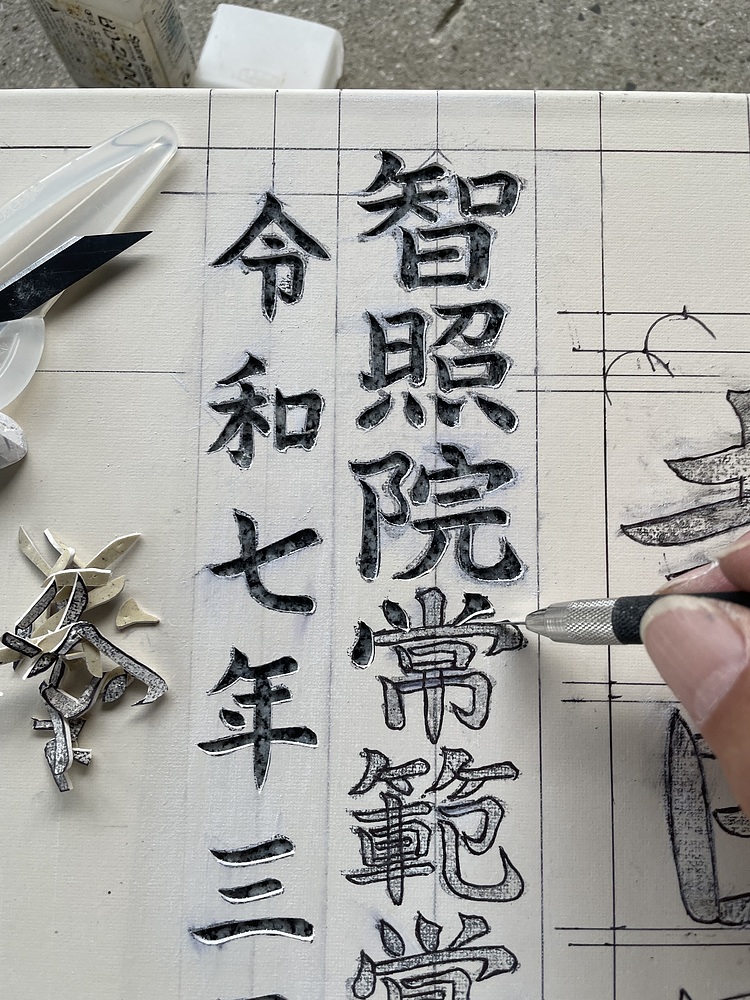 智照院常範常
令和七年三